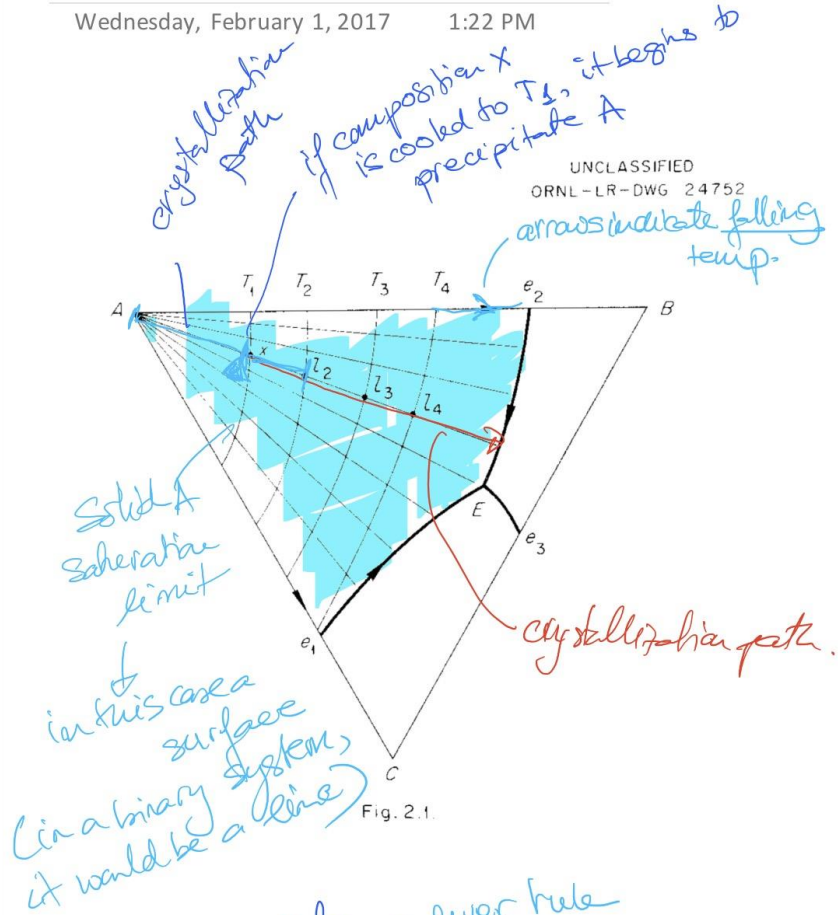 Wednesday, February 1, 2017 1:22 PM
crystallization
path
if composition X
is cooled to T1, it begins to
precipitate A
UNCLASSIFIED
ORNL-LR-DWG 24752
arrows indicate falling
temp.
A
T1 T2 T3 T4 e2
B
x
l2
l3
l4
E
e3
e1
C
Solid A
saturation
limit
in this case a
surface
(in a binary system,
it would be a line)
crystallization path.
Fig. 2.1.
lever rule